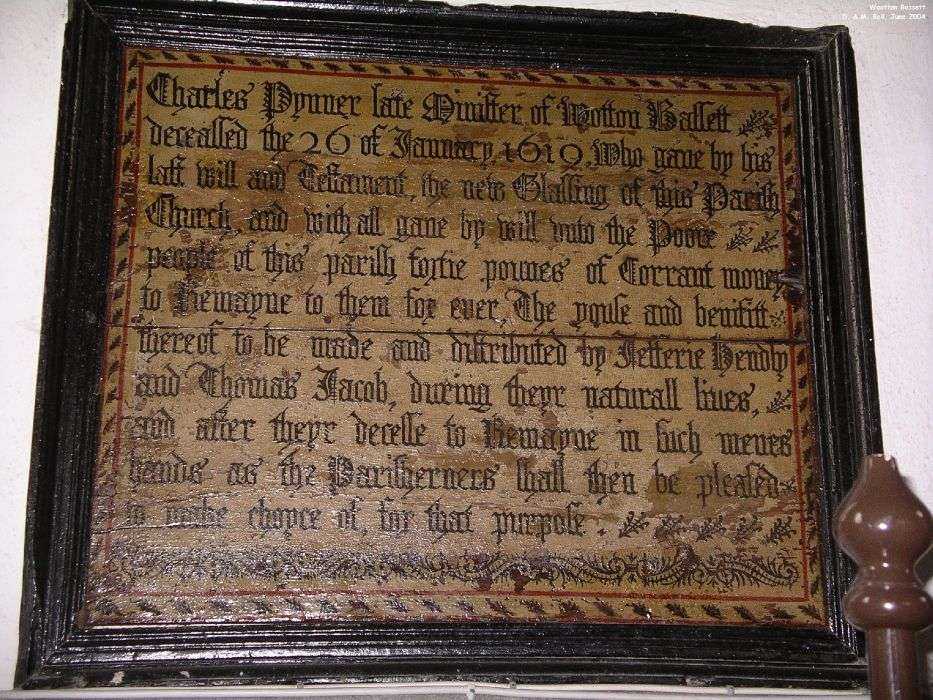 Wootton Bassett
D. A.M. Bell, June 2004
Charles Pynner late Minister of Wotton Bassett
deceassed the 26 of Januarij 1619. Who gaue by his
last will and Testament, the new Glassing of this Parish
Church, and with all gaue by will vnto the Poore
people of this parish fortie pounes of Corrant money
to Remayne to them for ever, The youse and benifitt
thereof to be made and distributed by Jefferie Hendly
and Thomas Jacob, during theyr naturall liues,
and after theyr decesse to Remayne in such menes
hands as the Parisherners shall then be pleased
to make choyce of, for that purpose